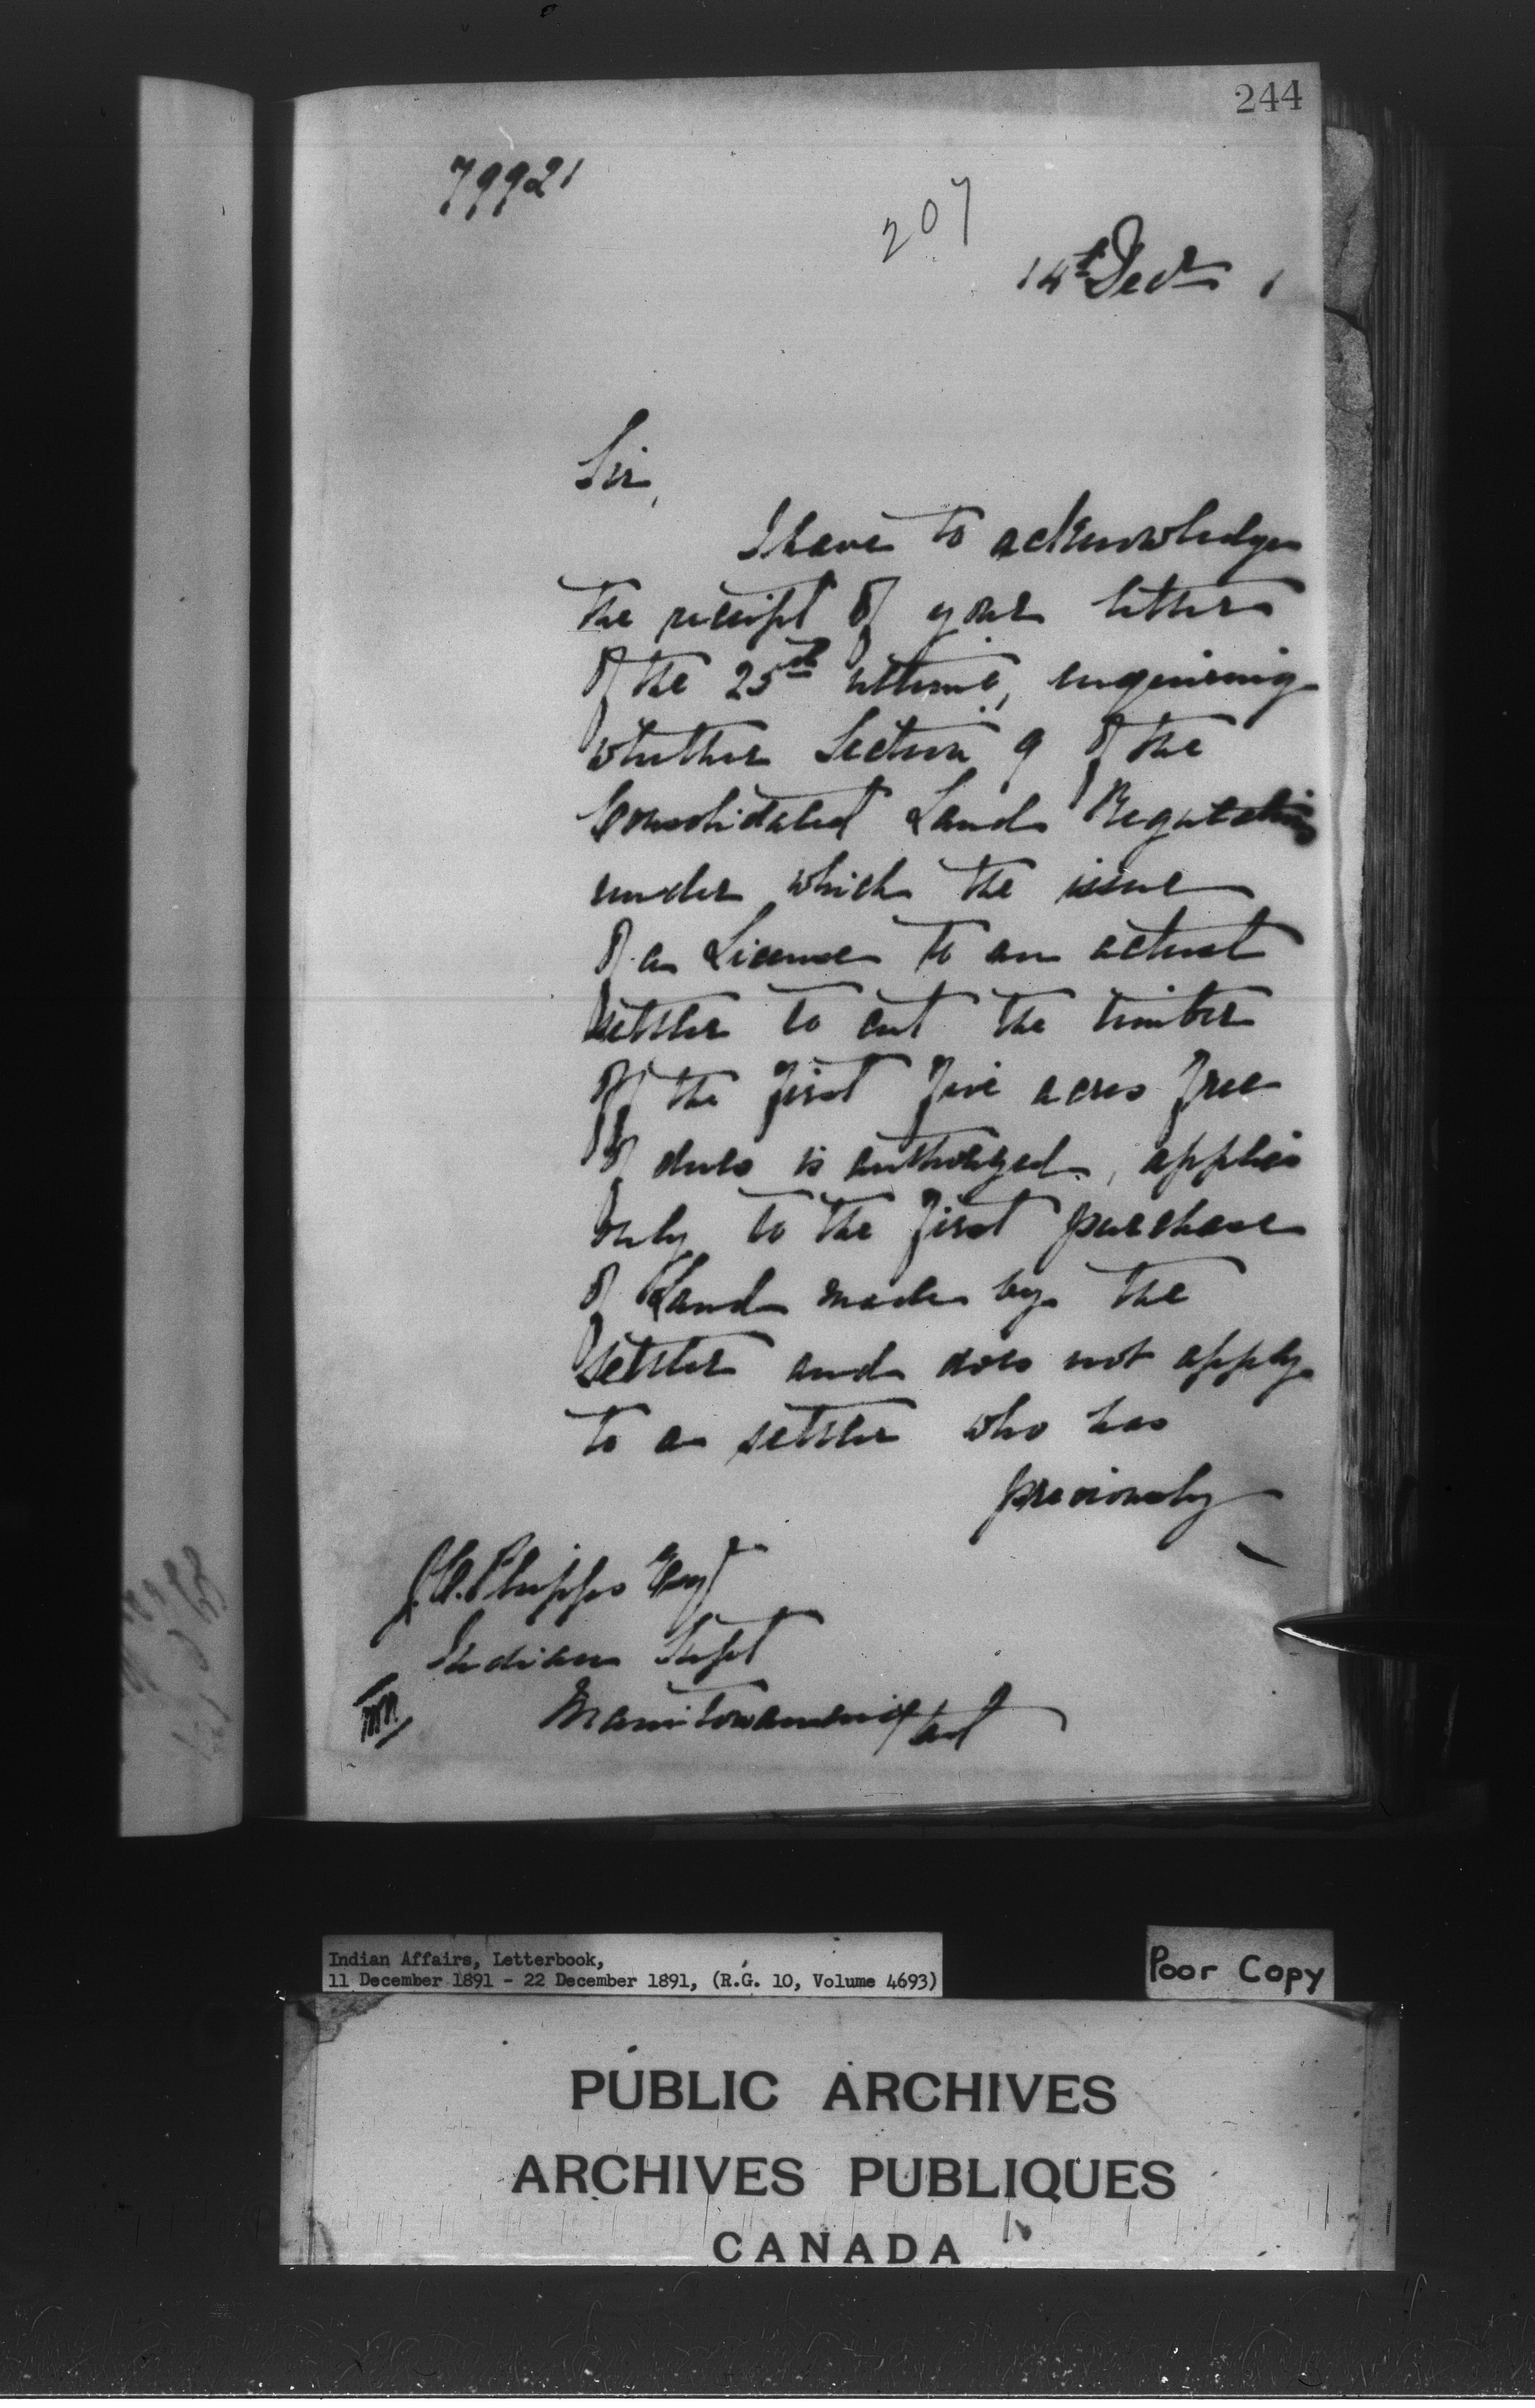 244
79921
207
14th Decr 1
Sir,
I have to acknowledge
the receipt of your letter
of the 25th ultimo, enquiring
whether Section 9 of the
Consolidated Land Regulations
under which the issue
of a License to an actual
settler to cut the timber
of the first five acres free
of dues is authorized, applies
only to the first purchase
of Land made by the
settler and does not apply
to a settler who has
previously
J.C. Phipps Esqr
Indian Supt
Manitowaning Ont
Indian Affairs, Letterbook,
11 December 1891 - 22 December 1891, (R.G. 10, Volume 4693)
Poor Copy
PUBLIC ARCHIVES
ARCHIVES PUBLIQUES
CANADA